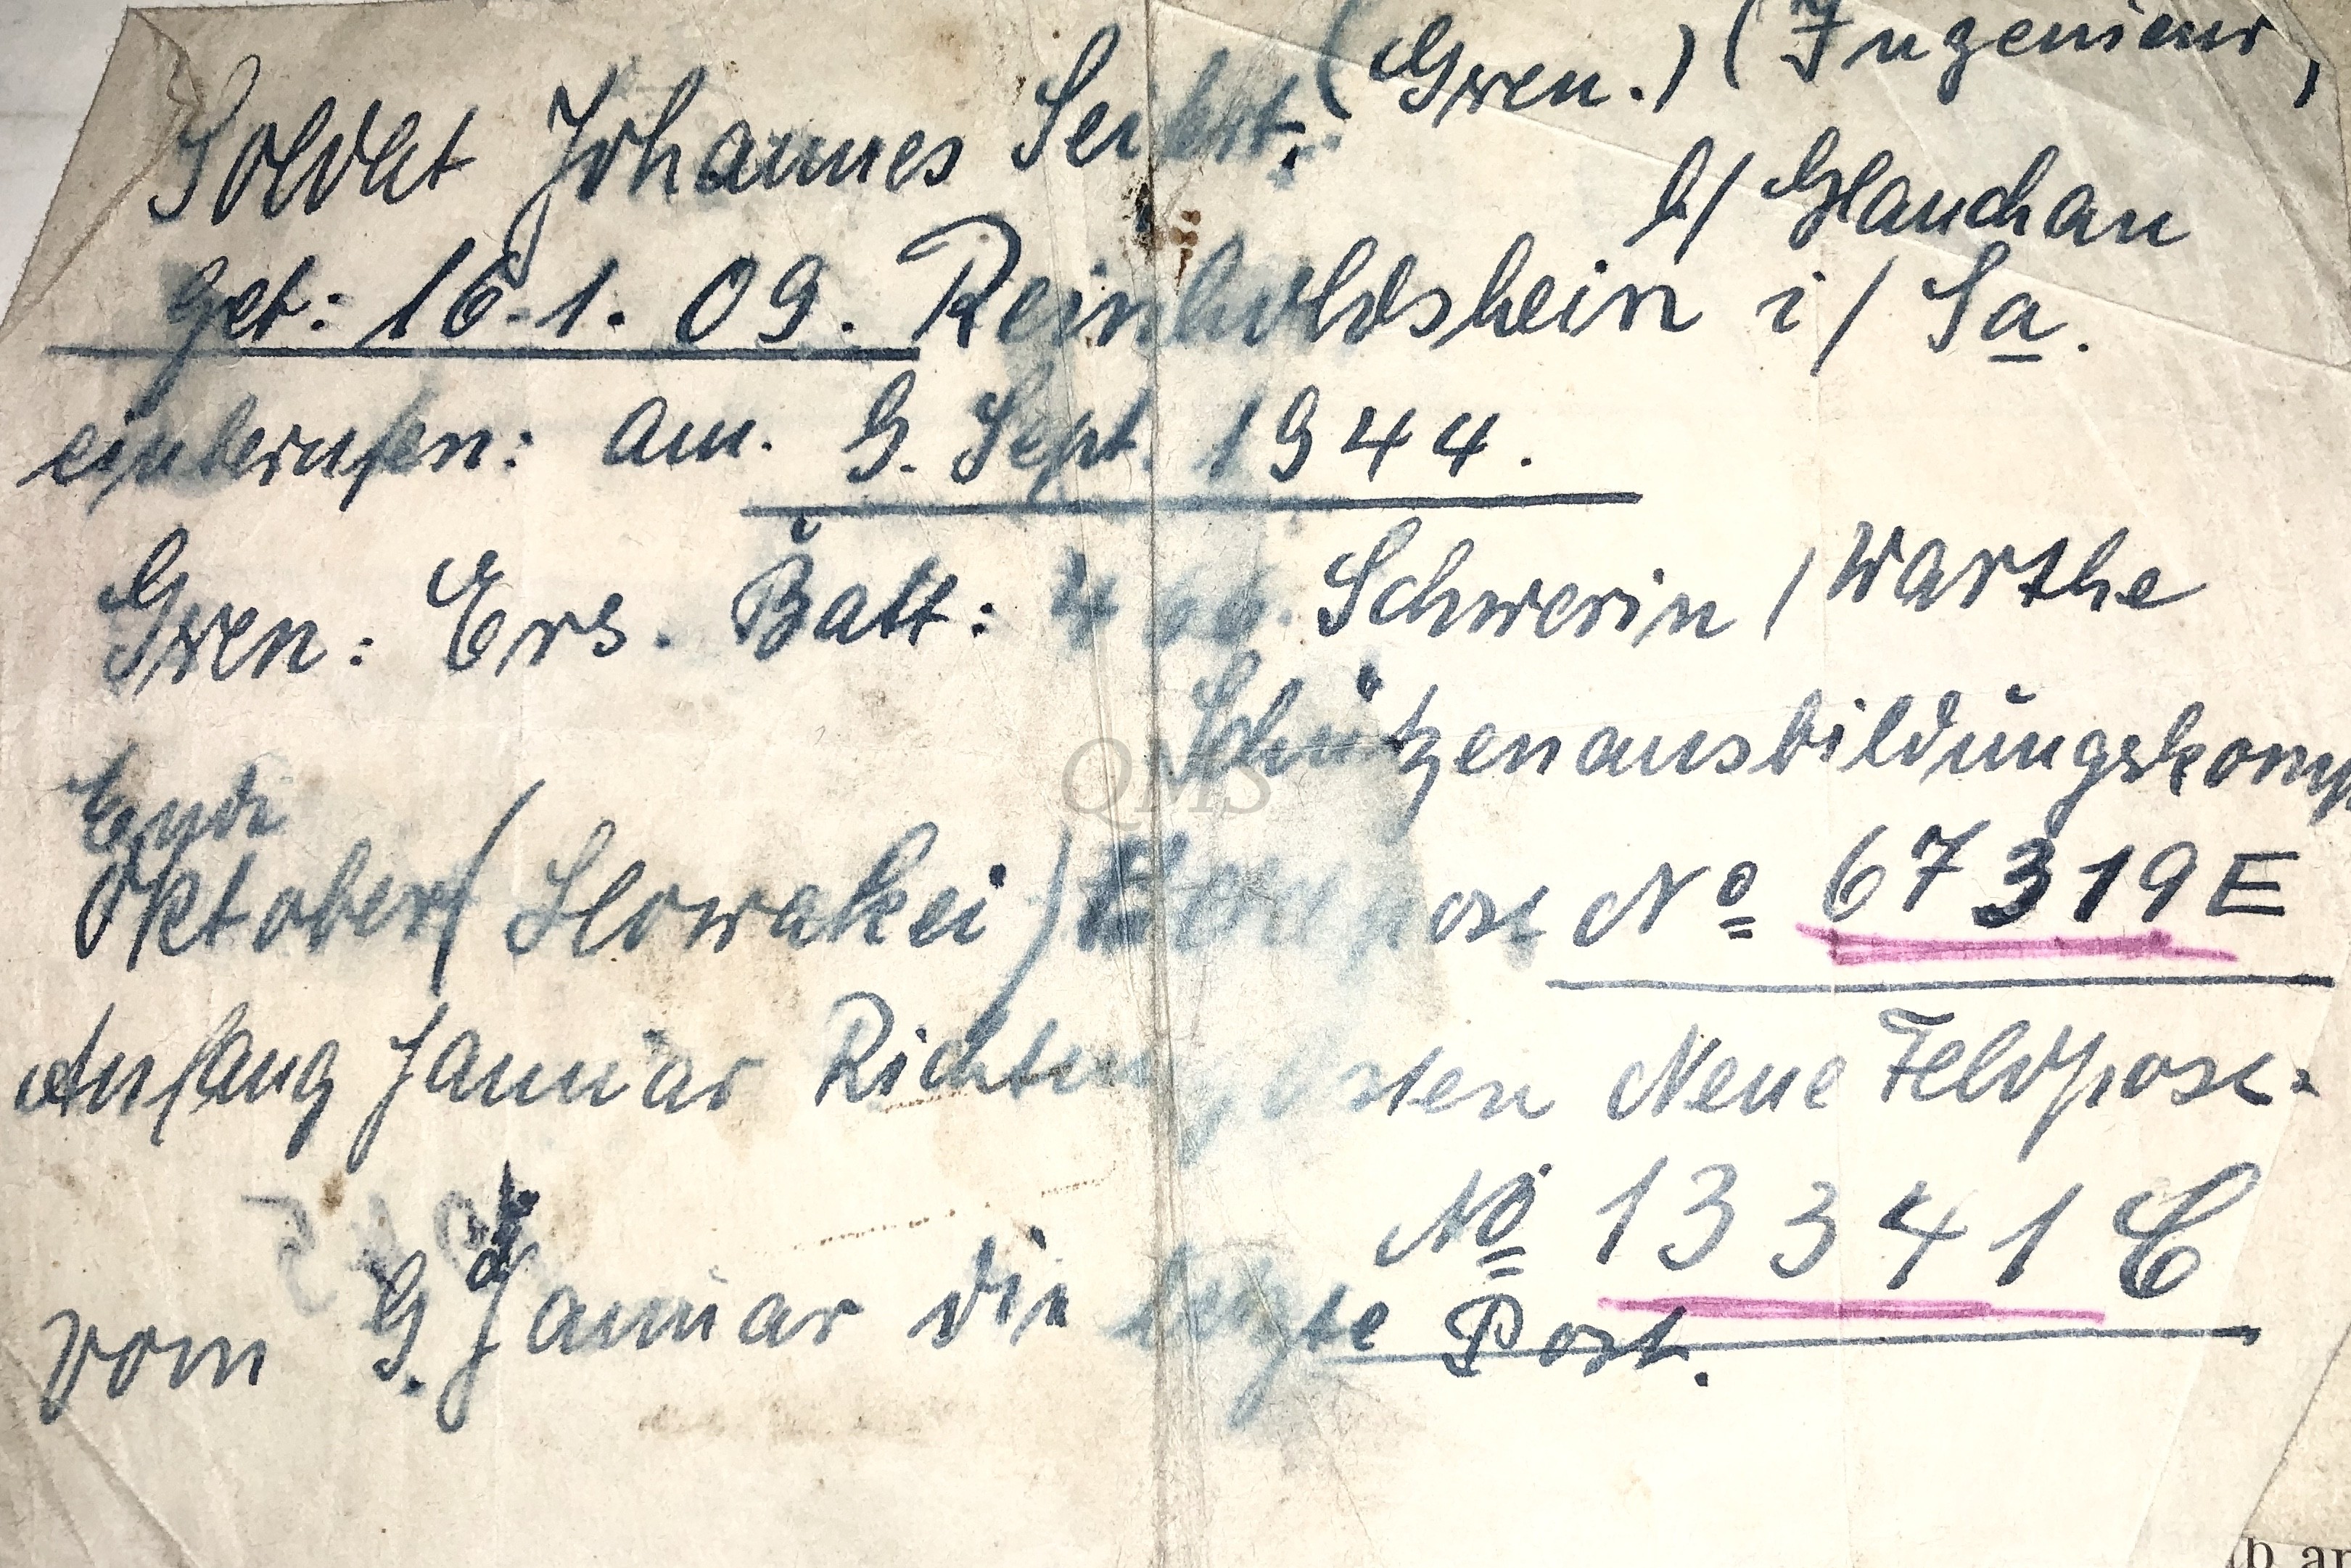 Soldat Johannes (Gren.) (Ingenieur,
b/ Glauchau
geb: 16.1.09. Reinholdshein i/ Sa.
einberufen: am. 9. Sept. 1944.
Gren: Ers. Batt: Schwerin / Warthe
Schützenausbildungskomp
Ende
Oktober (Slowakei) No 67319E
Anfang Januar Richtung Osten Neue Feldpost-
No 13341 C
vom 9. Januar die letzte Post.
QMS